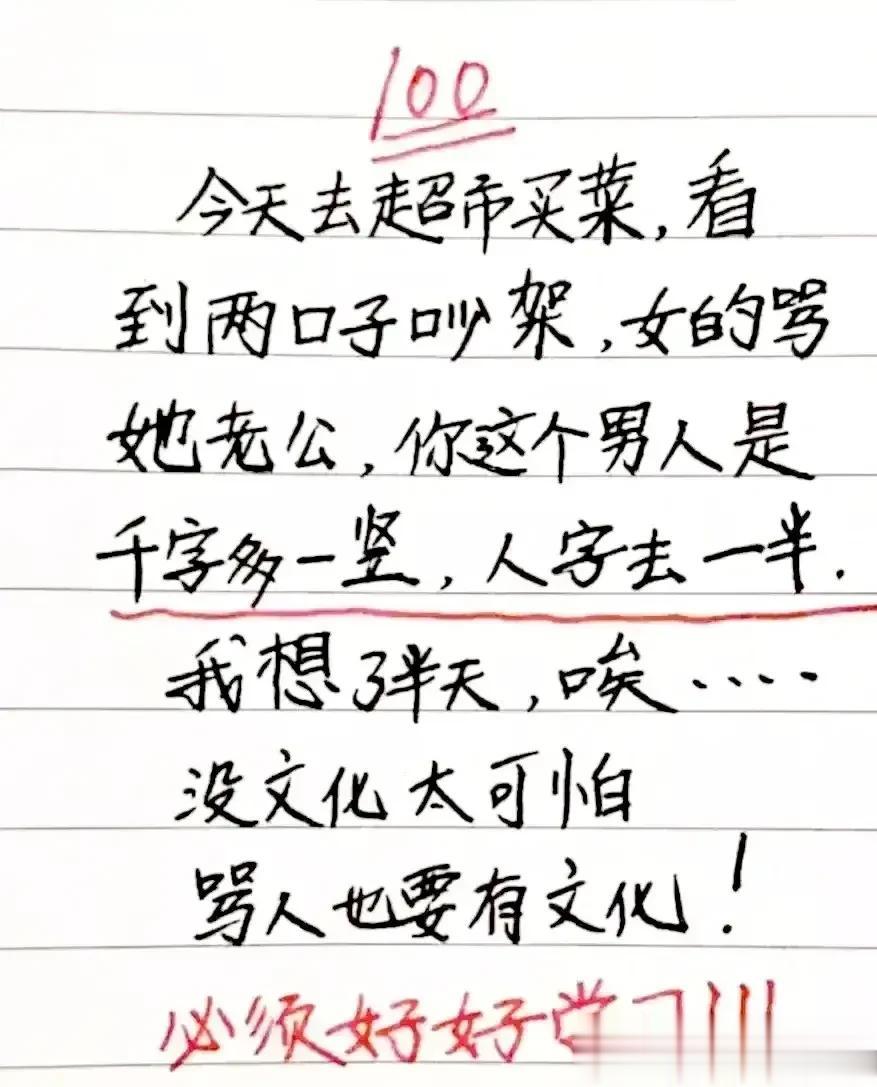 100
今天去超市买菜，看
到两口子吵架，女的骂
她老公，你这个男人是
千字多一竖，人字去一半．
我想了半天，唉·····
没文化太可怕
骂人也要有文化！
必须好好学习!!!